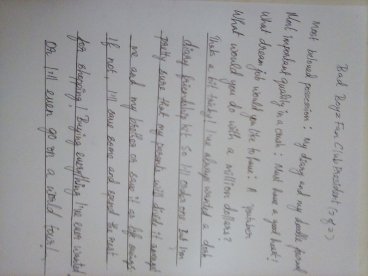 Bad Boyz Fan Club President (2 of 2)
Most beloved possession : my diary and my doodle journal
Most important quality in a crush : Must have a good heart!
What dream job would you like to have : A youtuber
What would you do with a million dollars?
Thats a bit tricky! I've always wanted a desk
diary friendship set So I'll order one But I'm
pretty sure that my parents will divide it amongst
me and my brother or save it as life savings
If not, I'll save some and spend the rest
for shopping! Buying everything I've ever wanted!
Or I'll even go on a world tour!